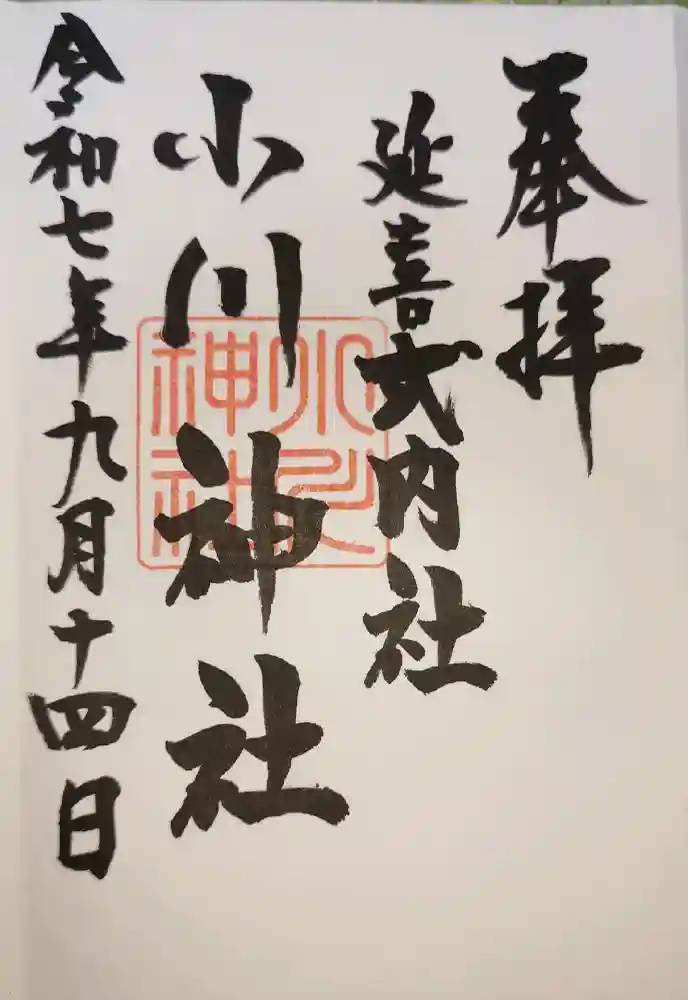 奉拝
延喜式内社
小川神社
令和七年九月十四日